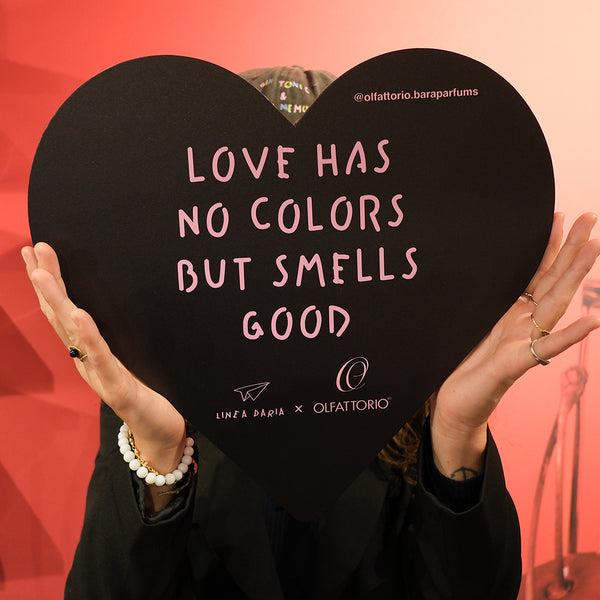 TONI
&
@olfattorio.baraparfums
LOVE HAS
NO COLORS
BUT SMELLS
GOOD
LINEA DARIA x OLFATTORIO®